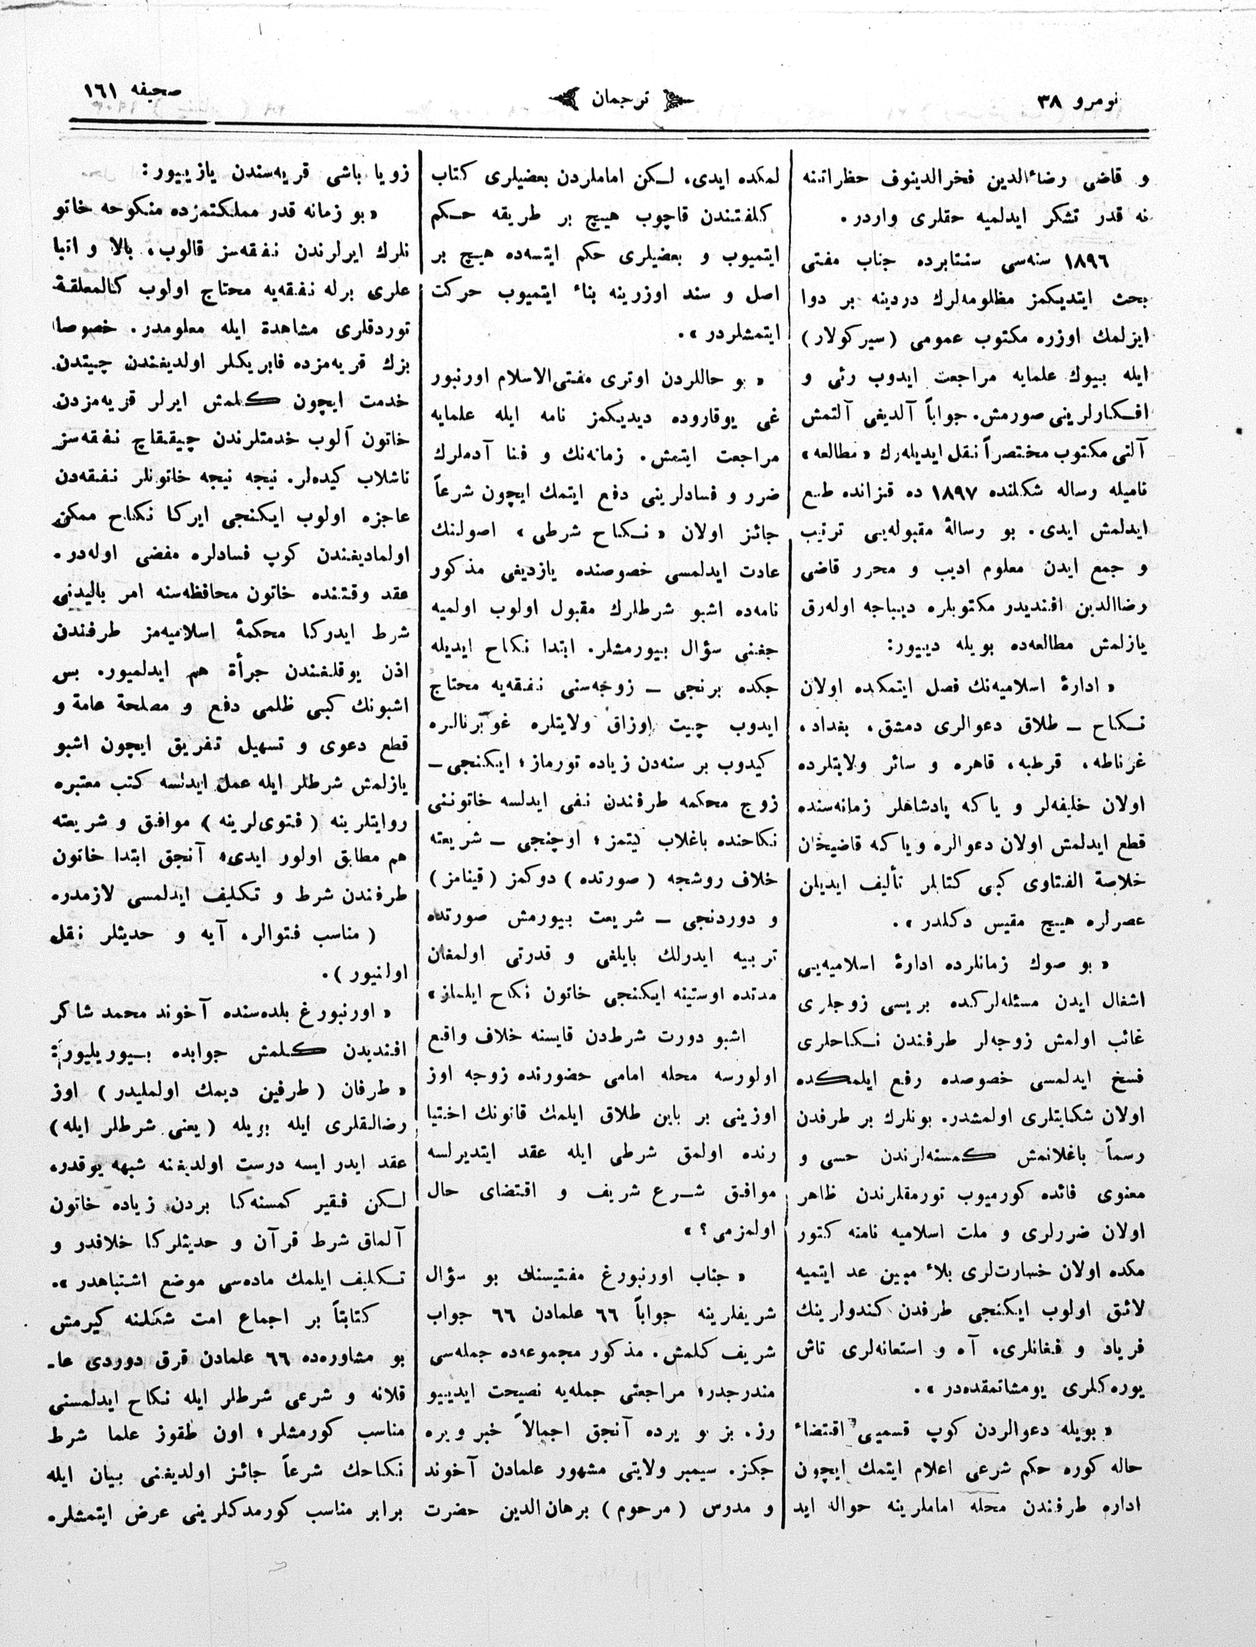 نومرو ٣٨
ترجمان
صحيفه ١٦١
و قاضی رضاءالدین فخرالدینوف حظراتنه
نه قدر تشکر ایدلمیه حقلری واردر.
١٨٩٦ سنه‌سی سنتابرده جناب مفتی
بحث ایتدیکمز مظلومه‌لرك دردینه بر دوا
ایزلمك اوزره مکتوب عمومی (سیرکولار)
ایله بیوك علمایه مراجعت ایدوب رئی و
افکارلرینی صورمش. جواباً آلدیغی آلتمش
آلتی مکتوب مختصراً نقل ایدیله‌رك «مطالعه»
نامیله رساله شکلنده ١٨٩٧ ده قزانده طبع
ایدلمش ایدی. بو رسالۀ مقبوله‌یی ترتیب
و جمع ایدن معلوم ادیب و محرر قاضی
رضاالدین افندیدر مکتوبلره دیباجه اوله‌رق
یازلمش مطالعه‌ده بویله دییور:
« ادارۀ اسلامیه‌نك فصل ایتمکده اولان
نکاح ـ طلاق دعوالری دمشق، بغداد،
غرناطه، قرطبه، قاهره و سائر ولایتلرده
اولان خلیفه‌لر و یا که پادشاهلر زمانه‌سنده
قطع ایدلمش اولان دعوالره ویا که قاضیخان
خلاصة الفتاوی کبی کتابلر تألیف ایدیلن
عصرلره هیچ مقیس دکلدر ».
« بو صوك زمانلرده ادارۀ اسلامیه‌یی
اشغال ایدن مسئله‌لرکده بریسی زوجلری
غائب اولمش زوجه‌لر طرفندن نکاحلری
فسخ ایدلمسی خصوصده رفع ایلمکده
اولان شکایتلری اولمشدر. بونلرك بر طرفدن
رسماً باغلانمش کمسنه‌لرندن حسی و
معنوی فائده کورمیوب تورمقلرندن ظاهر
اولان ضررلری و ملت اسلامیه نامنه کتور
مکده اولان خسارت‌لری بلاء مبین عد ایتمیه
لائق اولوب ایکنجی طرفدن کندولرینك
فریاد و فغانلری، آه و استعانه‌لری تاش
یوره‌کلری یومشاتمقده‌در ».
« بویله دعوالردن کوپ قسمیی اقتضاء
حاله کوره حکم شرعی اعلام ایتمك ایچون
اداره طرفندن محله اماملرینه حواله اید
لمکده ایدی، لکن اماملردن بعضیلری کتاب
کلفتندن قاچوب هیچ بر طریقه حکم
ایتمیوب و بعضیلری حکم ایتسه‌ده هیچ بر
اصل و سند اوزرینه بناء ایتمیوب حرکت
ایتمشلردر ».
« بو حاللردن اوتری مفتی‌الاسلام اورنبور
غی یوقاروده دیدیکمز نامه ایله علمایه
مراجعت ایتمش. زمانه‌نك و فنا آدملرك
ضرر و فسادلرینی دفع ایتمك ایچون شرعاً
جائز اولان « نکاح شرطی » اصولنك
عادت ایدلمسی خصوصنده یازدیغی مذکور
نامه‌ده اشبو شرطلرك مقبول اولوب اولمیه
جغنی سؤال بیورمشلر. ابتدا نکاح ایدیله
جکده برنجی ـ زوجه‌سنی نفقه‌یه محتاج
ایدوب چیت اوزاق ولایتلره غوبرنالره
کیدوب بر سنه‌دن زیاده تورماز؛ ایکنجی ـ
زوج محکمه طرفندن نفی ایدلسه خاتوننی
نکاحنده باغلاب کیتمز؛ اوچنجی ـ شریعته
خلاف روشجه (صورتده) دوکمز (قینامز)
و دوردنجی ـ شریعت بیورمش صورتده
تربیه ایدرلك بایلغی و قدرتی اولمغان
مدتده اوستینه ایکنجی خاتون نکاح ایلماز»
اشبو دورت شرطدن قایسنه خلاف واقع
اولورسه محله امامی حضورنده زوجه اوز
اوزینی بر باین طلاق ایلمك قانونك اختیا
رنده اولمق شرطی ایله عقد ایتدیرلسه
موافق شرع شریف و اقتضای حال
اولمزمی؟ »
« جناب اورنبورغ مفتیسنك بو سؤال
شریفلرینه جواباً ٦٦ علمادن ٦٦ جواب
شریف کلمش. مذکور مجموعه‌ده جمله‌سی
مندرجدر؛ مراجعتی جمله‌یه نصیحت ایدییو
رز. بز بو یرده آنجق اجمالاً خبر ویره
جکز. سیمبر ولایتی مشهور علمادن آخوند
و مدرس (مرحوم) برهان‌الدین حضرت
زویا باشی قریه‌سندن یازییور:
« بو زمانه قدر مملکتمزده منکوحه خاتو
نلرك ایرلرندن نفقه‌سز قالوب، بالا و اتبا
علری برله نفقه‌یه محتاج اولوب کالمعلقة
توردقلری مشاهدة ایله معلومدر. خصوصا
بزك قریه‌مزده فابریکلر اولدیغندن چیتدن
خدمت ایچون کلمش ایرلر قریه‌مزدن
خاتون آلوب خدمتلرندن چیقفاچ نفقه‌سز
تاشلاب کیده‌لر. نیجه نیجه خاتونلر نفقه‌دن
عاجزه اولوب ایکنجی ایرکا نکاح ممکن
اولمادیغندن کوپ فسادلره مفضی اوله‌در.
عقد وقتنده خاتون محافظه‌سنه امر بالیدنی
شرط ایدرکا محکمۀ اسلامیه‌مز طرفندن
اذن یوقلغندن جرأة هم ایدلمیور. بس
اشبونك کبی ظلمی دفع و مصلحة عامة و
قطع دعوی و تسهیل تفریق ایچون اشبو
یازلمش شرطلر ایله عمل ایدلسه کتب معتبره
روایتلرینه (فتوی‌لرینه) موافق و شریعته
هم مطابق اولور ایدی؛ آنجق ابتدا خاتون
طرفندن شرط و تکلیف ایدلمسی لازمدر»
(مناسب فتوالر، آیه و حدیثلر نقل
اولنیور).
« اورنبورغ بلده‌سنده آخوند محمد شاکر
افندیدن کلمش جوابده بیوریلیور:
« طرفان (طرفین دیمك اولملیدر) اوز
رضالقلری ایله بویله (یعنی شرطلر ایله)
عقد ایدر ایسه درست اولدیغنه شبهه یوقدر،
لکن فقیر کمسنه‌کا بردن زیاده خاتون
آلماق شرط قرآن و حدیثلرکا خلافدر و
تکلیف ایلمك ماده‌سی موضع اشتباهدر ».
کتابتاً بر اجماع امت شکلنه کیرمش
بو مشاوره‌ده ٦٦ علمادن قرق دوردی عا۔
قلانه و شرعی شرطلر ایله نکاح ایدلمسنی
مناسب کورمشلر؛ اون طقوز علما شرط
نکاحك شرعاً جائز اولدیغنی بیان ایله
برابر مناسب کورمدکلرینی عرض ایتمشلر،